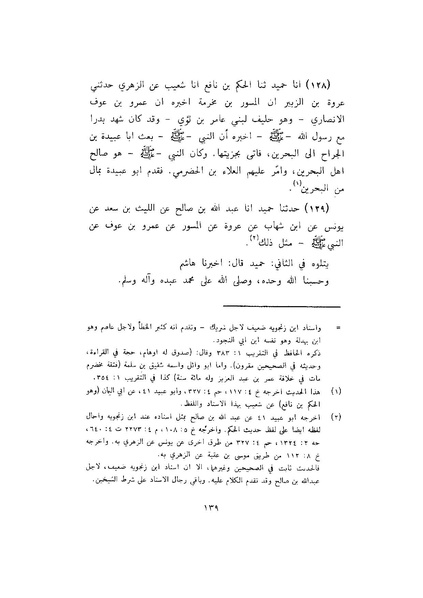 (١٢٨) انا حميد ثنا الحكم بن نافع انا شعيب عن الزهري حدثني
عروة بن الزبير ان المسور بن مخرمة اخبره ان عمرو بن عوف
الانصاري – وهو حليف لبني عامر بن لؤي – وقد كان شهد بدرا
مع رسول الله –ﷺ– اخبره أن النبي –ﷺ– بعث ابا عبيدة بن
الجراح الى البحرين، فاتى بجزيتها. وكان النبي –ﷺ– هو صالح
اهل البحرين، وامّر عليهم العلاء بن الحضرمي. فقدم ابو عبيدة بمال
من البحرين(١).
(١٢٩) حدثنا حميد انا عبد الله بن صالح عن الليث بن سعد عن
يونس عن ابن شهاب عن عروة عن المسور عن عمرو بن عوف عن
النبيﷺ – مثل ذلك(٢).
يتلوه في الثاني: حميد قال: اخبرنا هاشم
وحسبنا الله وحده، وصلى الله على محمد عبده وآله وسلم.
= واسناد ابن زنجويه ضعيف لاجل شريك – وتقدم انه كثير الخطأ ولاجل عاصم وهو
ابن بهدلة وهو نفسه ابن ابي النجود.
ذكره الحافظ في التقريب ١: ٣٨٣ وقال: (صدوق له اوهام، حجة في القراءة،
وحديثه في الصحيحين مقرون). واما ابو وائل واسمه شقيق بن سلمة (فثقة مخضرم
مات في خلافة عمر بن عبد العزيز وله مائة سنة) كذا في التقريب ١: ٣٥٤.
(١) هذا الحديث اخرجه خ ٤: ١١٧، حم ٤: ٣٢٧، وابو عبيد ٤١، عن ابي اليمان (وهو
الحكم بن نافع) عن شعيب بهذا الاسناد واللفظ.
(٢) اخرجه ابو عبيد ٤١ عن عبد الله بن صالح بمثل اسناده عند ابن زنجويه واحال
لفظه ايضا على لفظ حديث الحكم. واخرجه خ ٥: ١٠٨، م ٤: ٢٢٧٣ ت ٤: ٦٤٠،
جه ٢: ١٣٢٤، حم ٤: ٣٢٧ من طرق اخرى عن يونس عن الزهري به. واخرجه
خ ٨: ١١٢ من طريق موسى بن عقبة عن الزهري به.
فالحديث ثابت في الصحيحين وغيرهما. الا ان اسناد ابن زنجويه ضعيف، لاجل
عبدالله بن صالح وقد تقدم الكلام عليه. وباقي رجال الاسناد على شرط الشيخين.
١٣٩